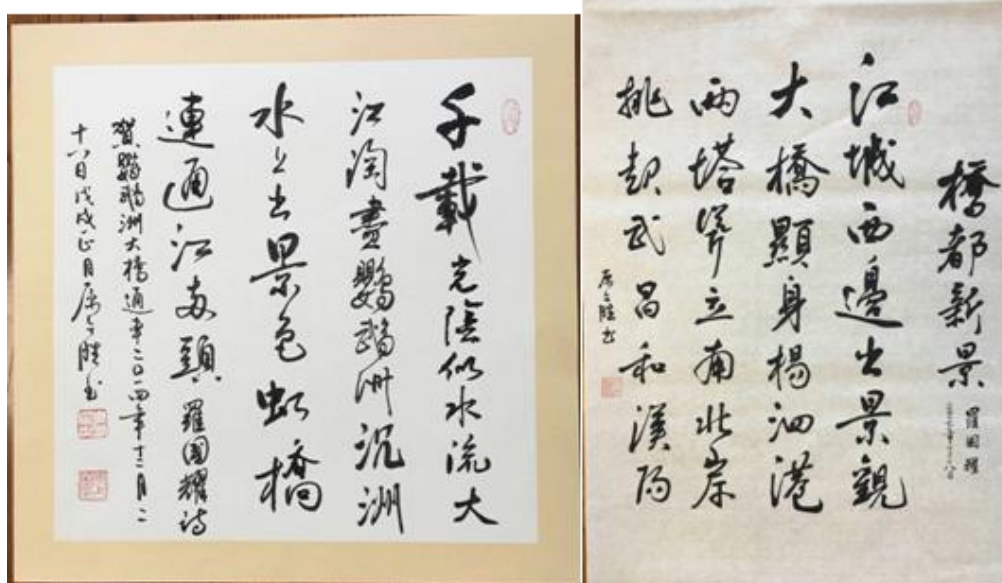 千載光陰似水流大
江淘盡鸚鵡洲沉洲
水上出景色虹橋
連通江兩頭 羅國耀詩
賀鸚鵡洲大橋通車二〇一四年十二月二
十八日戊戌正月 勝书
橋都新景 羅國耀
江城西邊出景觀
大橋顯身楊泗港
兩塔聳立南北岸
挑起武昌和漢陽
勝书